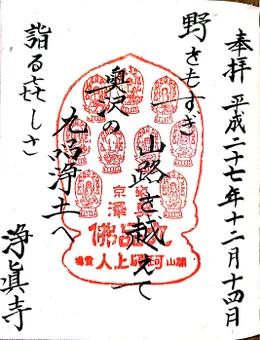 奉拝 平成二十七年十二月十四日
野さもすぎ
山路を越えて
奥沢の
九品浄土へ
詣る喜しさ
浄眞寺
九品佛
開山珂碩上人霊場